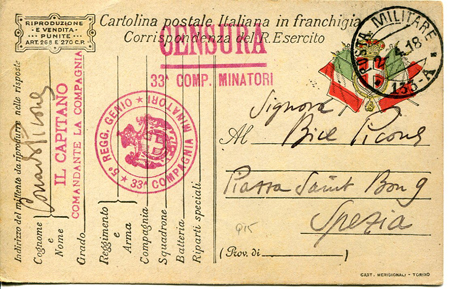 RIPRODUZIONE
E VENDITA
PUNITE
ART. 268 E 270 C.P.
Cartolina postale Italiana in franchigia
Corrispondenza del R. Esercito
CENSURA
33ª COMP. MINATORI
POSTA MILITARE
4.18
133-A
5º REGG. GENIO MINATORI
33ª COMPAGNIA
IL CAPITANO
COMANDANTE LA COMPAGNIA
Indirizzo del mittente da riprodurre nelle risposte
Cognome
e
Nome
Grado
Reggimento
e
Arma
Compagnia
Squadrone
Batteria
Riparti speciali
Signora
Al Bice Picone
Piazza Saint Bon 9
Spezia
(Prov. di)
CAST. MERIDIONALI - TORINO